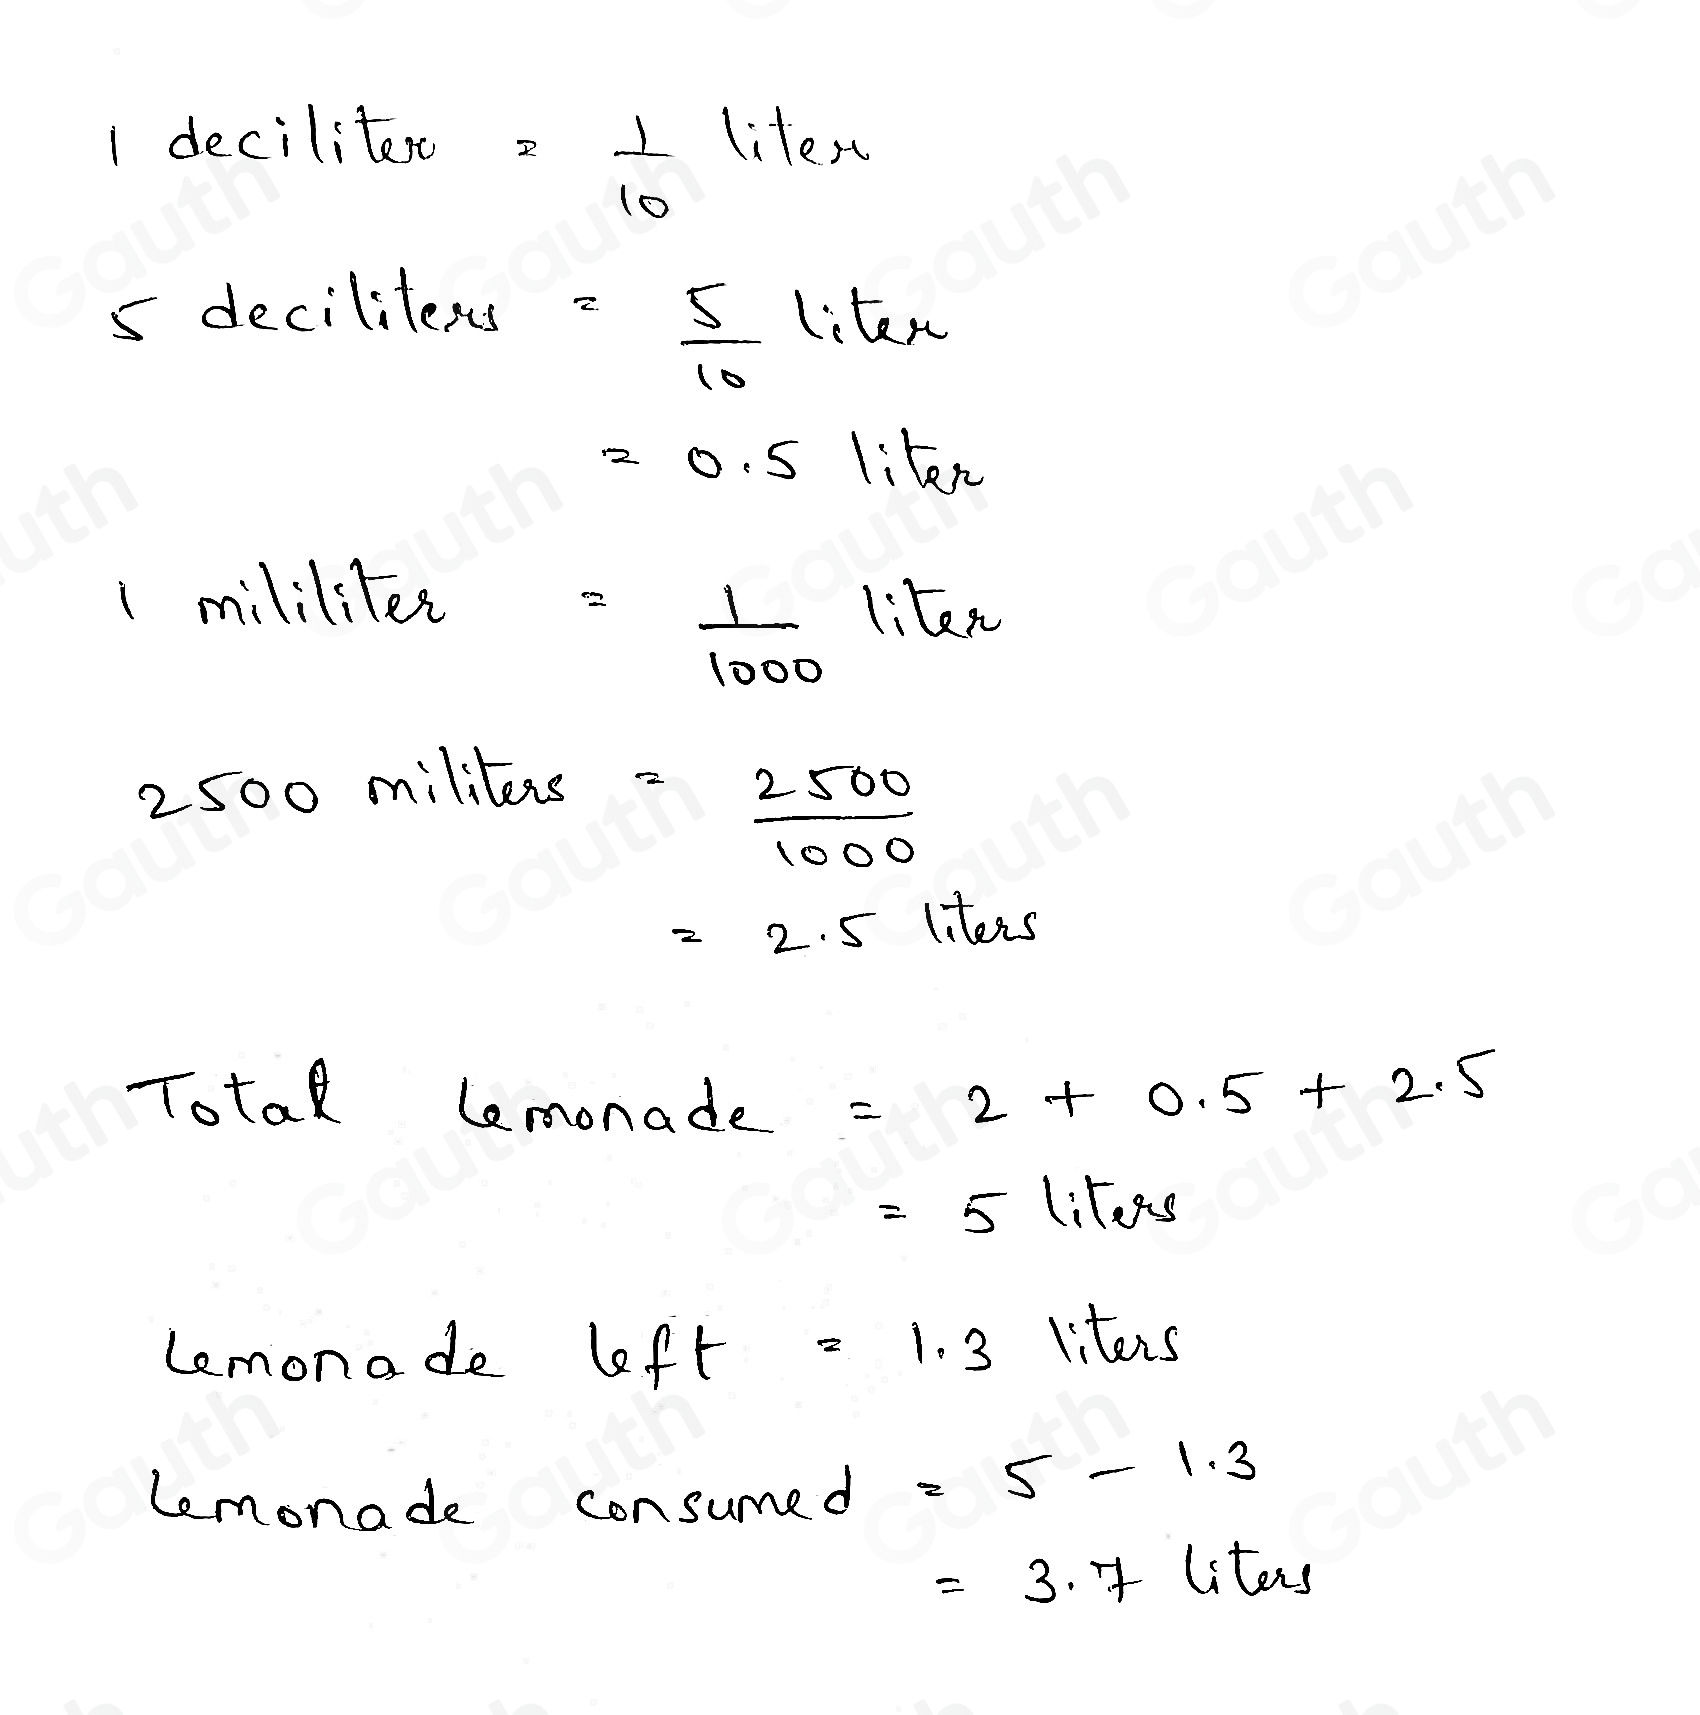 1 deciliter = 1/10 liter
5 deciliters = 5/10 liter
= 0.5 liter
1 mililiter = 1/1000 liter
2500 mililiters = 2500/1000
= 2.5 liters
Total Lemonade = 2 + 0.5 + 2.5
= 5 liters
Lemonade left = 1.3 liters
Lemonade consumed = 5 - 1.3
= 3.7 liters
Gauth